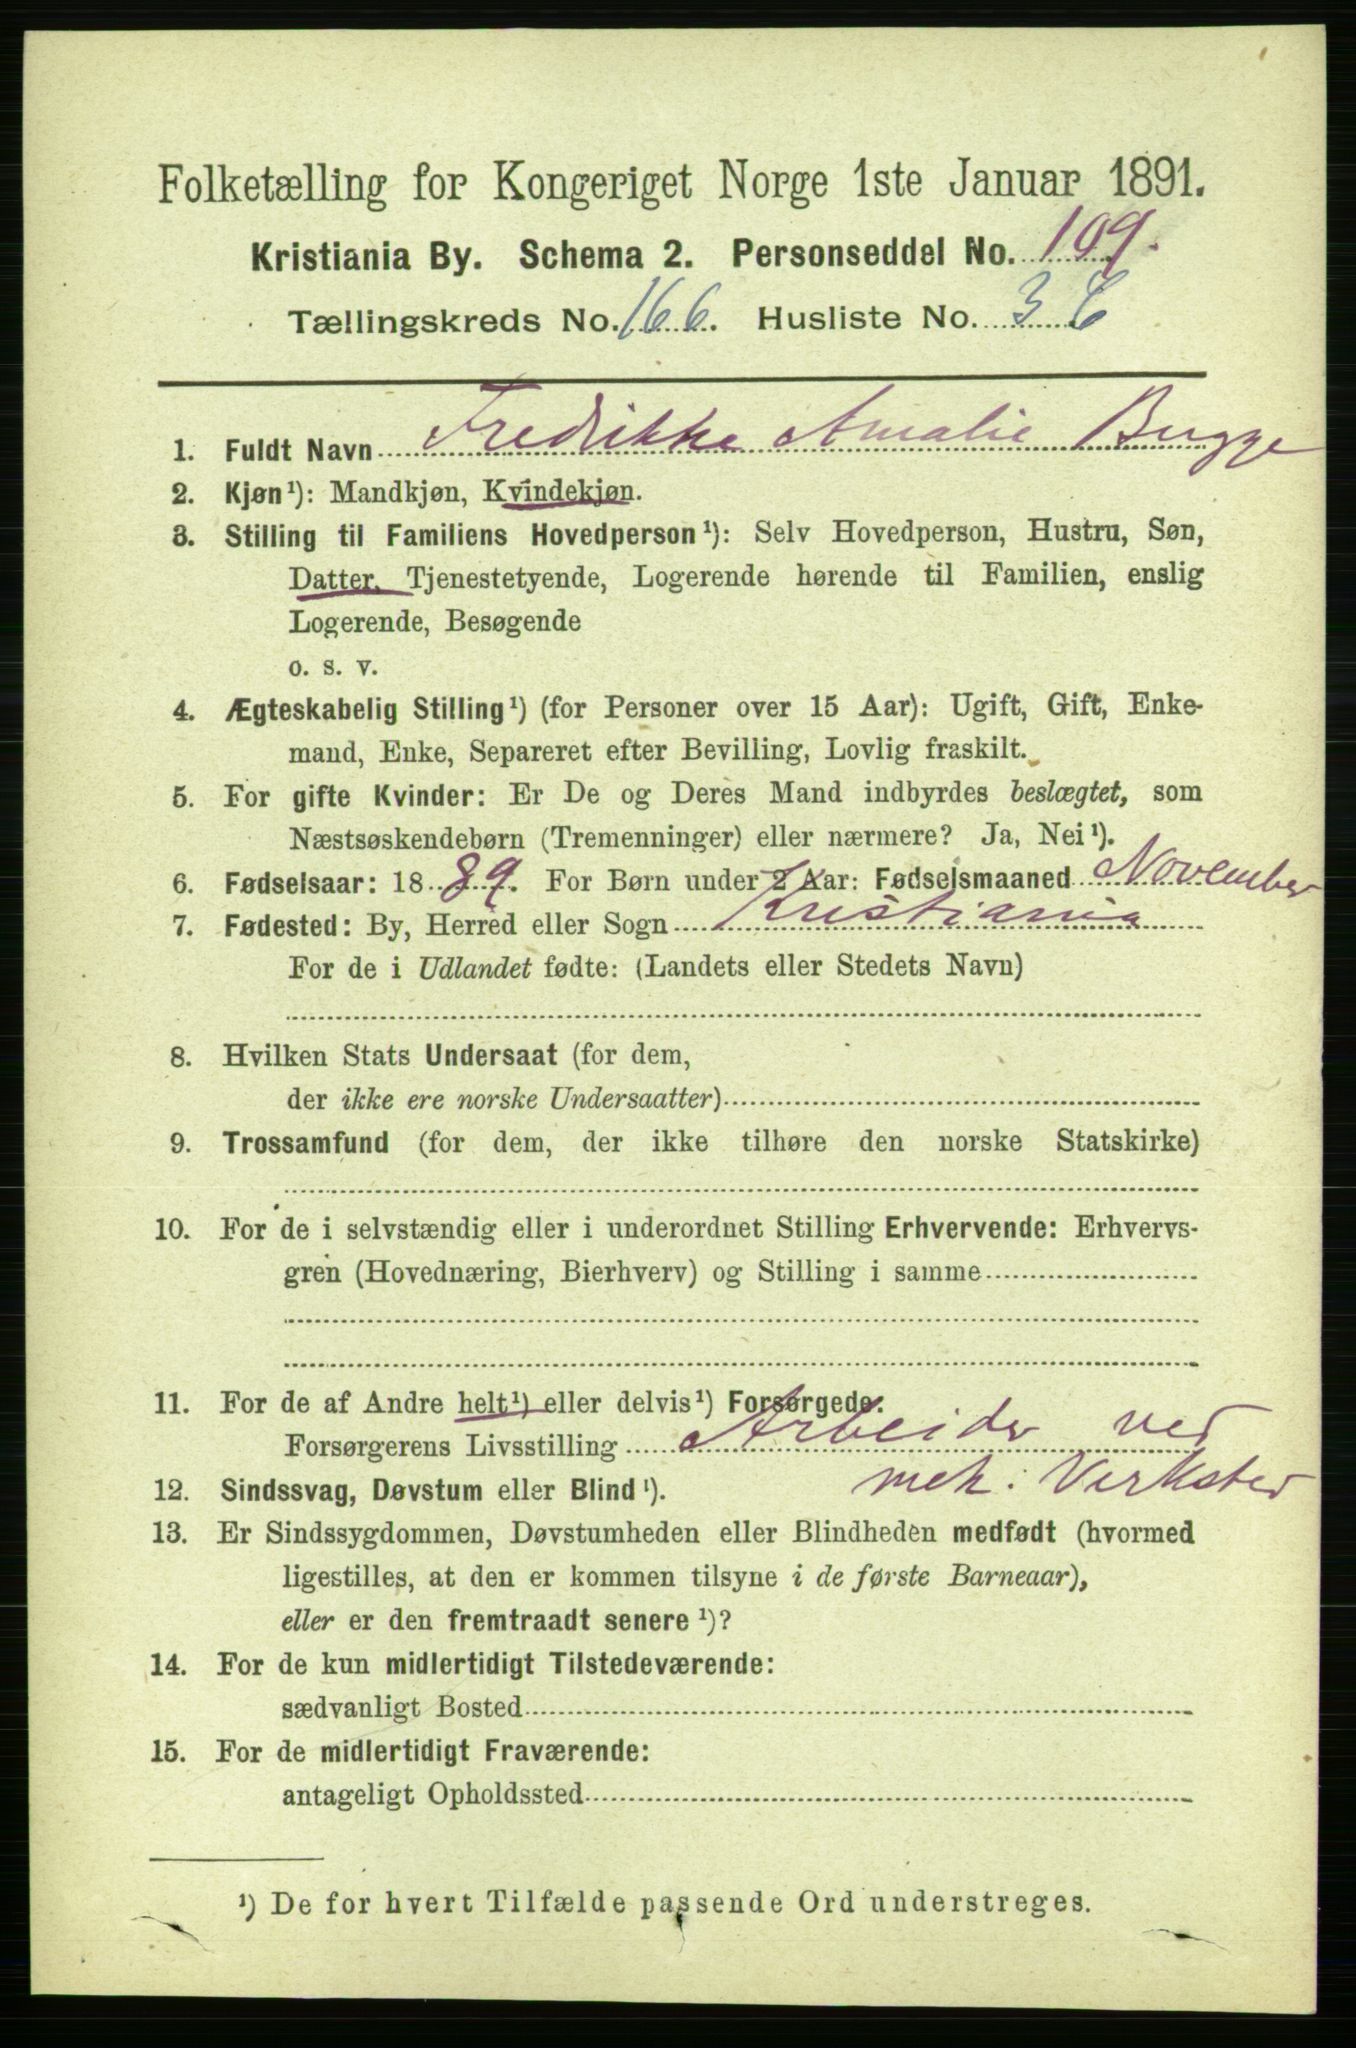 Folketælling for Kongeriget Norge 1ste Januar 1891.
Kristiania By. Schema 2. Personseddel No. 109.
Tællingskreds No. 166. Husliste No. 3 C
1. Fuldt Navn Fredrikke Amalie Bugge
2. Kjøn¹): Mandkjøn, Kvindekjøn.
3. Stilling til Familiens Hovedperson¹): Selv Hovedperson, Hustru, Søn,
Datter, Tjenestetyende, Logerende hørende til Familien, enslig
Logerende, Besøgende
o. s. v.
4. Ægteskabelig Stilling¹) (for Personer over 15 Aar): Ugift, Gift, Enke-
mand, Enke, Separeret efter Bevilling, Lovlig fraskilt.
5. For gifte Kvinder: Er De og Deres Mand indbyrdes beslægtet, som
Næstsøskendebørn (Tremenninger) eller nærmere? Ja, Nei¹).
6. Fødselsaar: 1889. For Børn under 2 Aar: Fødselsmaaned November
7. Fødested: By, Herred eller Sogn Kristiania
For de i Udlandet fødte: (Landets eller Stedets Navn)
8. Hvilken Stats Undersaat (for dem,
der ikke ere norske Undersaatter)
9. Trossamfund (for dem, der ikke tilhøre den norske Statskirke)
10. For de i selvstændig eller i underordnet Stilling Erhvervende: Erhvervs-
gren (Hovednæring, Bierhverv) og Stilling i samme
11. For de af Andre helt¹) eller delvis¹) Forsørgede:
Forsørgerens Livsstilling Arbeider ved
mek. Verksted
12. Sindssvag, Døvstum eller Blind¹).
13. Er Sindssygdommen, Døvstumheden eller Blindheden medfødt (hvormed
ligestilles, at den er kommen tilsyne i de første Barneaar),
eller er den fremtraadt senere¹)?
14. For de kun midlertidigt Tilstedeværende:
sædvanligt Bosted
15. For de midlertidigt Fraværende:
antageligt Opholdssted
¹) De for hvert Tilfælde passende Ord understreges.